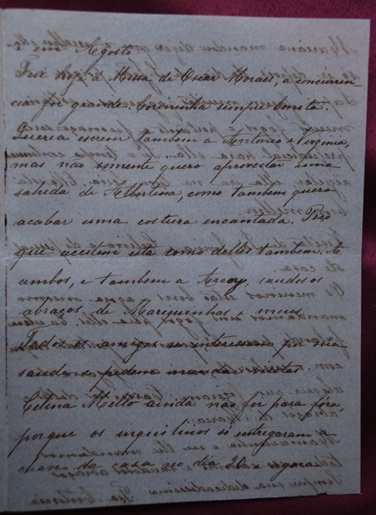 em Agosto.
Foi hoje a Missa de Cesar Moraes, a concurren
cia foi grande. Cecininha sempre
escrever também a Antonio e Virginia,
mas não somente quero aproveitar uma
sahida de Albertina, como também quero
acabar uma costura encantada. Peço
que aceitem esta como delles também. A
ambos, e também a saudosos
abraços de Mariquinhas e meus
Todos os amigos se interessam pr. sua
saude e pedem mandar visitas.
Celina Mello ainda não foi para
porque os inquilinos só entregaram a
chave da casa no dia 21 e agora